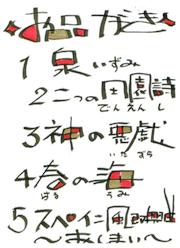 お品がき
1 泉 いずみ
2 二つの田園詩
でんえんし
3 神の悪戯
いたずら
4 春の海
はる うみ
5 スペイン風
〜あまい〜